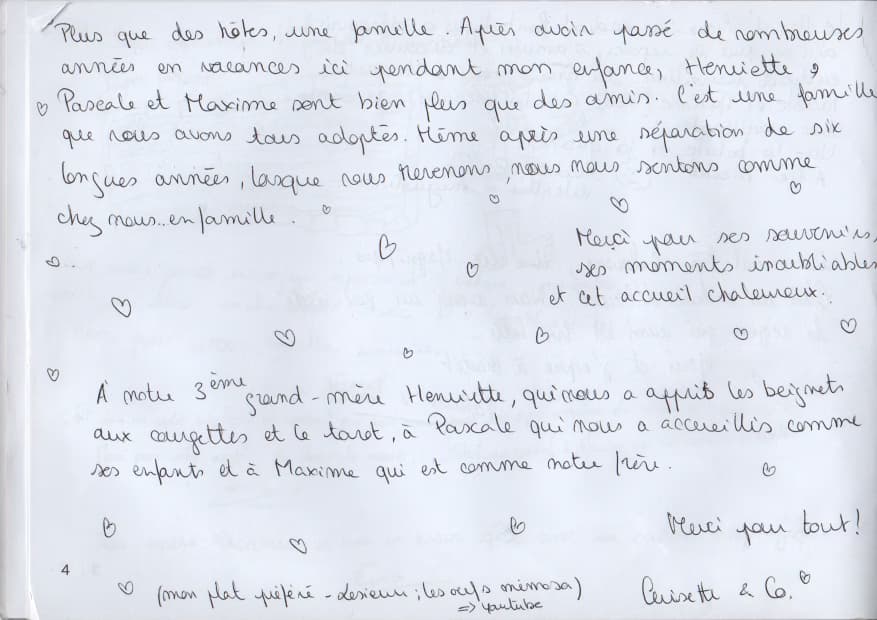 Plus que des hôtes, une famille. Après avoir passé de nombreuses
années en vacances ici pendant mon enfance, Henriette,
Pascale et Maxime sont bien plus que des amis. C'est une famille
que nous avons tous adoptés. Même après une séparation de six
longues années, lorsque nous revenons, nous nous sentons comme
chez nous.. en famille.
Merci pour ses souvenirs,
ses moments inoubliables
et cet accueil chaleureux..
À notre 3ème grand-mère Henriette, qui nous a appris les beignets
aux courgettes et le tarot, à Pascale qui nous a accueillis comme
ses enfants et à Maxime qui est comme notre frère.
Merci pour tout!
4
(mon plat préféré - ; les oeufs mimosa)
=> youtube
& Co.